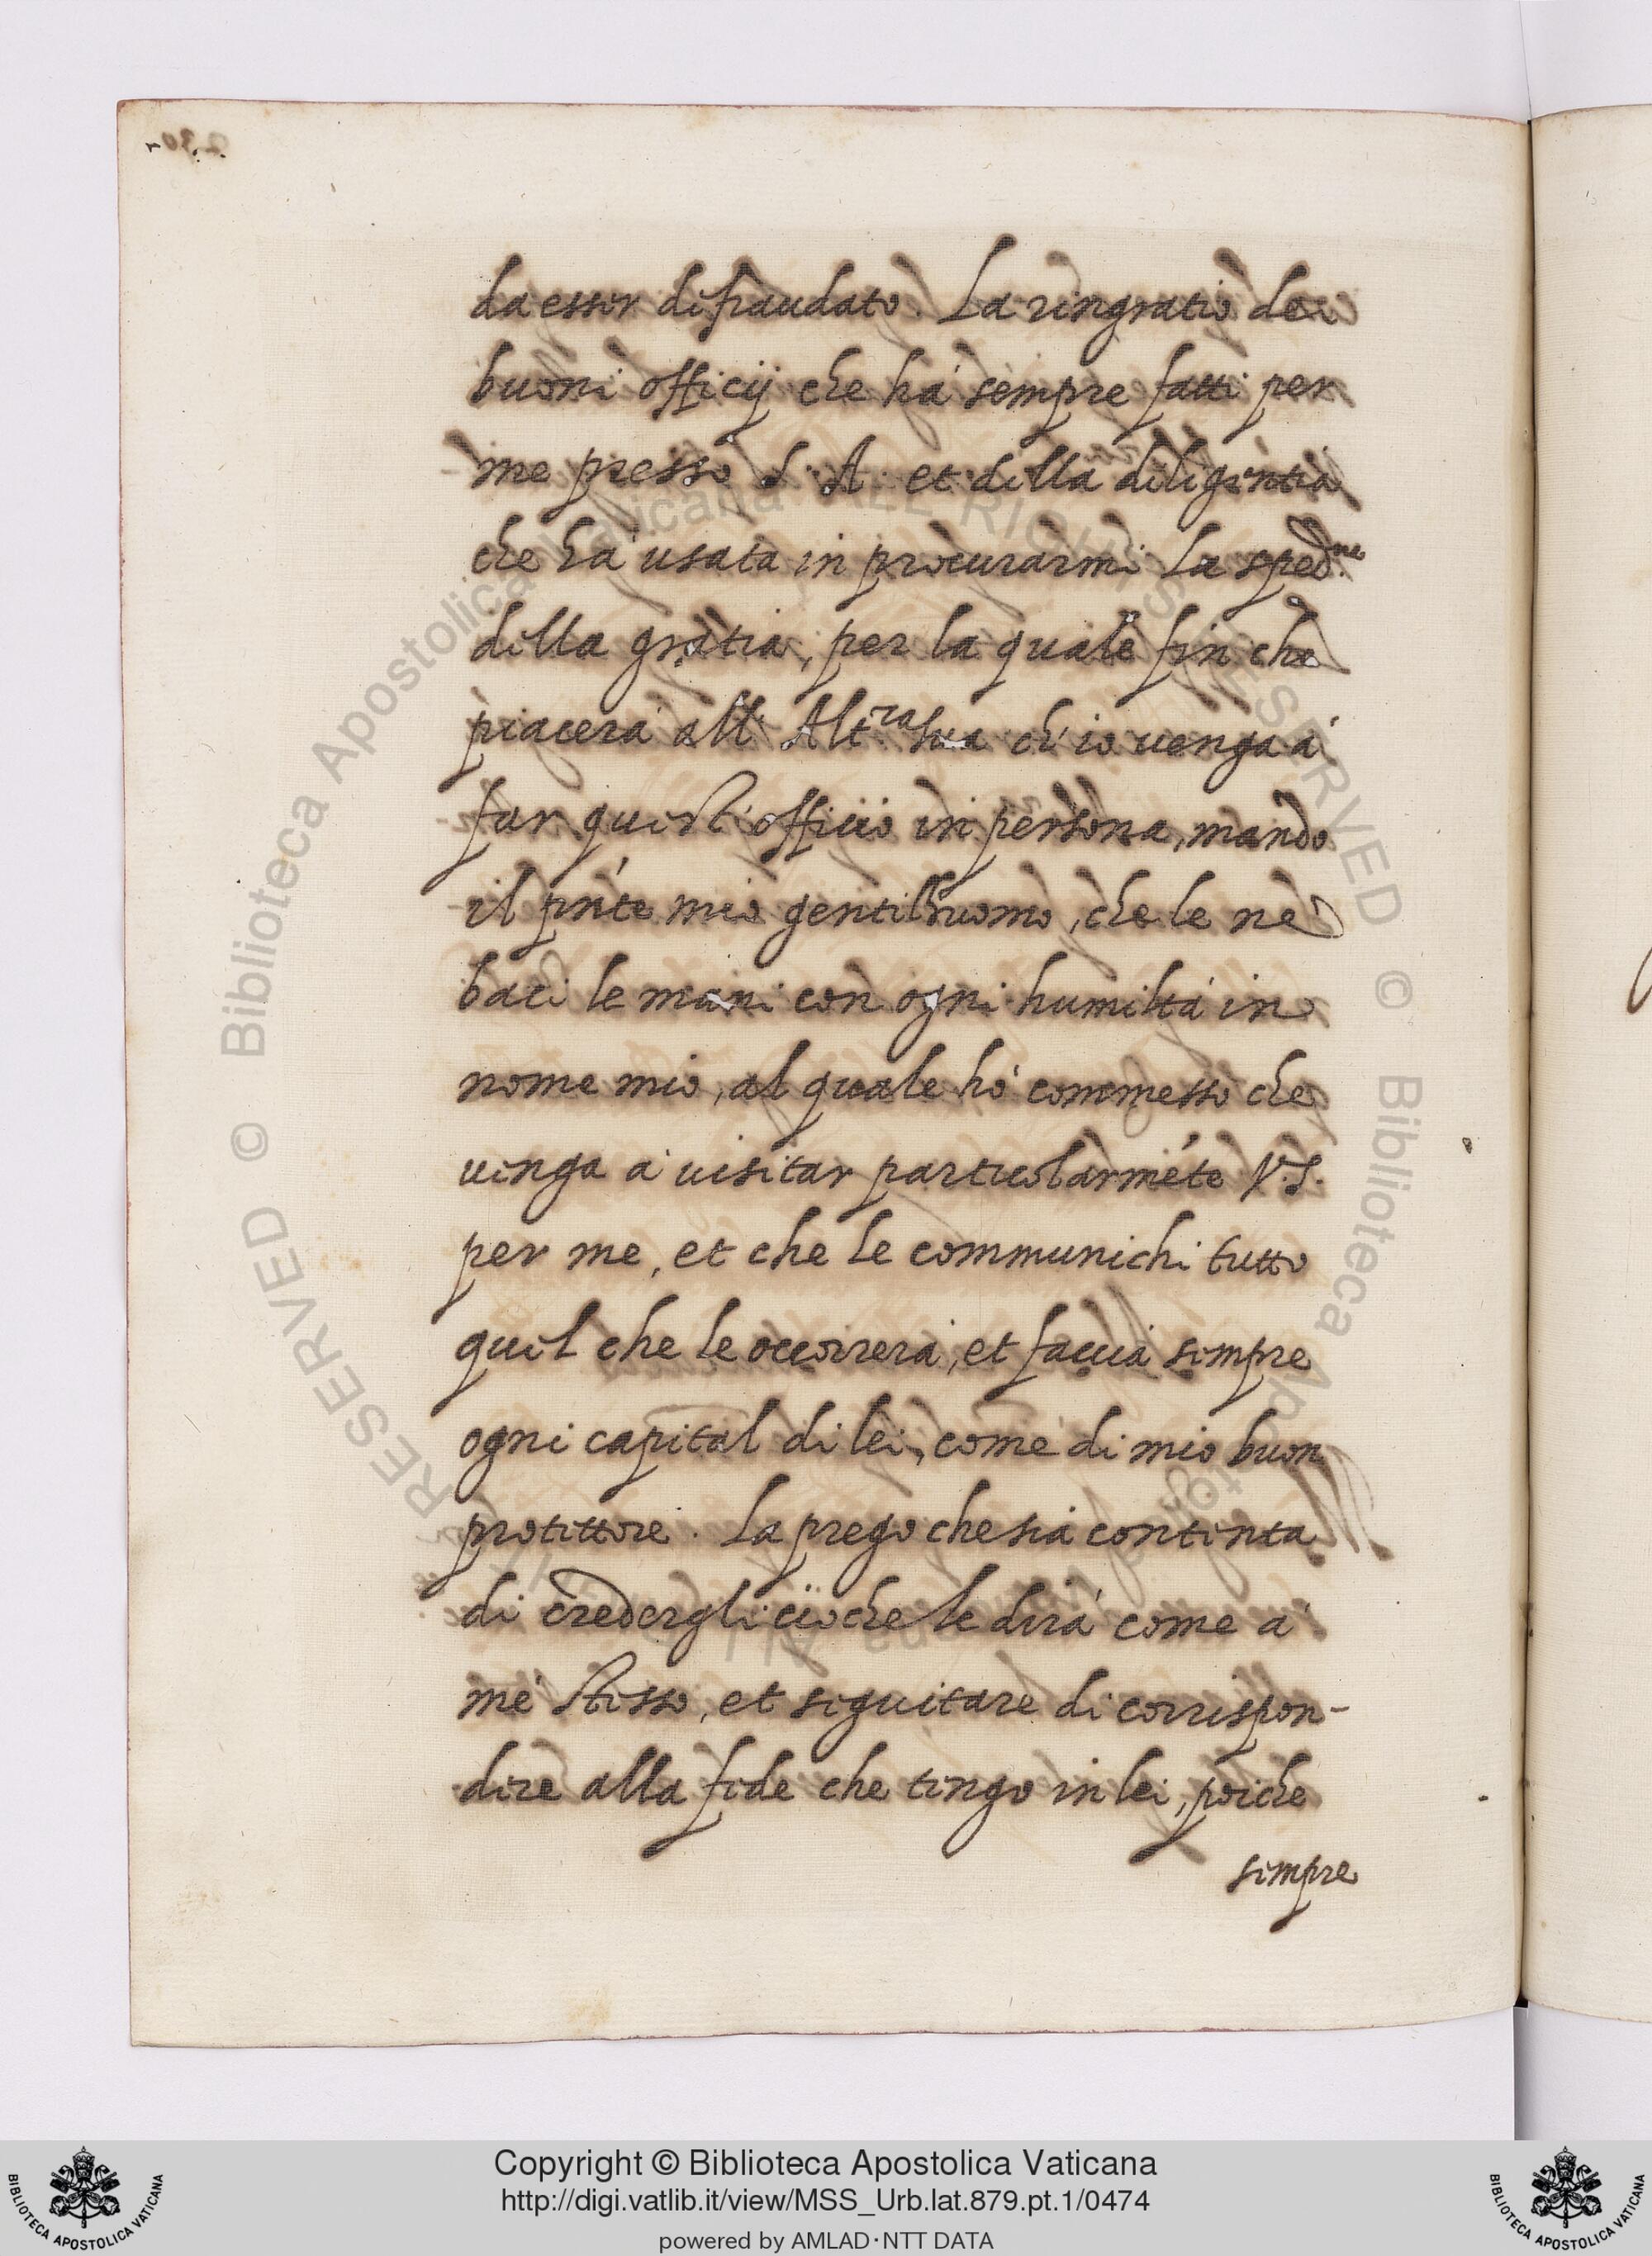 da esser defraudato. La ringratio de i
buoni officij che hà sempre fatti per
me presso S. A. et della diligentia
che hà usata in procurarmi La sped.ne
della gratia, per la quale fin che
piacerà all' Alt.ra sua ch' io uenga à
far questi officio in persona, mando
il pñte mio gentilhuomo, che le ne
baci le mani con ogni humiltà in
nome mio, al quale hò commesso che
uenga à uisitar particolarmēte V.S.
per me, et che le communichi tutto
quel che le occorrerà, et faccia sempre
ogni capital di lei, come di mio buon
protettore. La prego che sia contenta
di credergli ciò che le dirà come à
me stesso, et seguitare di corrispon-
dere alla fede che tengo in lei, poiche
sempre
Copyright © Biblioteca Apostolica Vaticana
http://digi.vatlib.it/view/MSS_Urb.lat.879.pt.1/0474
powered by AMLAD·NTT DATA
BIBLIOTECA APOSTOLICA VATICANA
BIBLIOTECA APOSTOLICA VATICANA